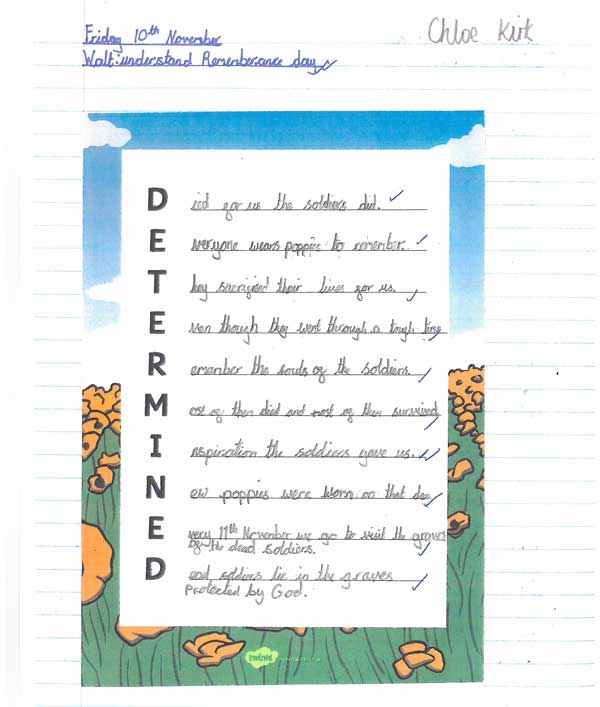 Friday 10th November
Chloe Kirk
Walt:understand Rememberance day
D ied for us the soldiers did.
E veryone wears poppies to remember.
T hey sacrificed their lives for us.
E ven though they went through a tough time
R emember the souls of the soldiers.
M ost of them died and most of them survived
I nspiration the soldiers gave us.
N ew poppies were worn on that day
E very 11th November we go to visit the graves
of the dead soldiers.
D ead soldiers lie in the graves
protected by God.
twinkl